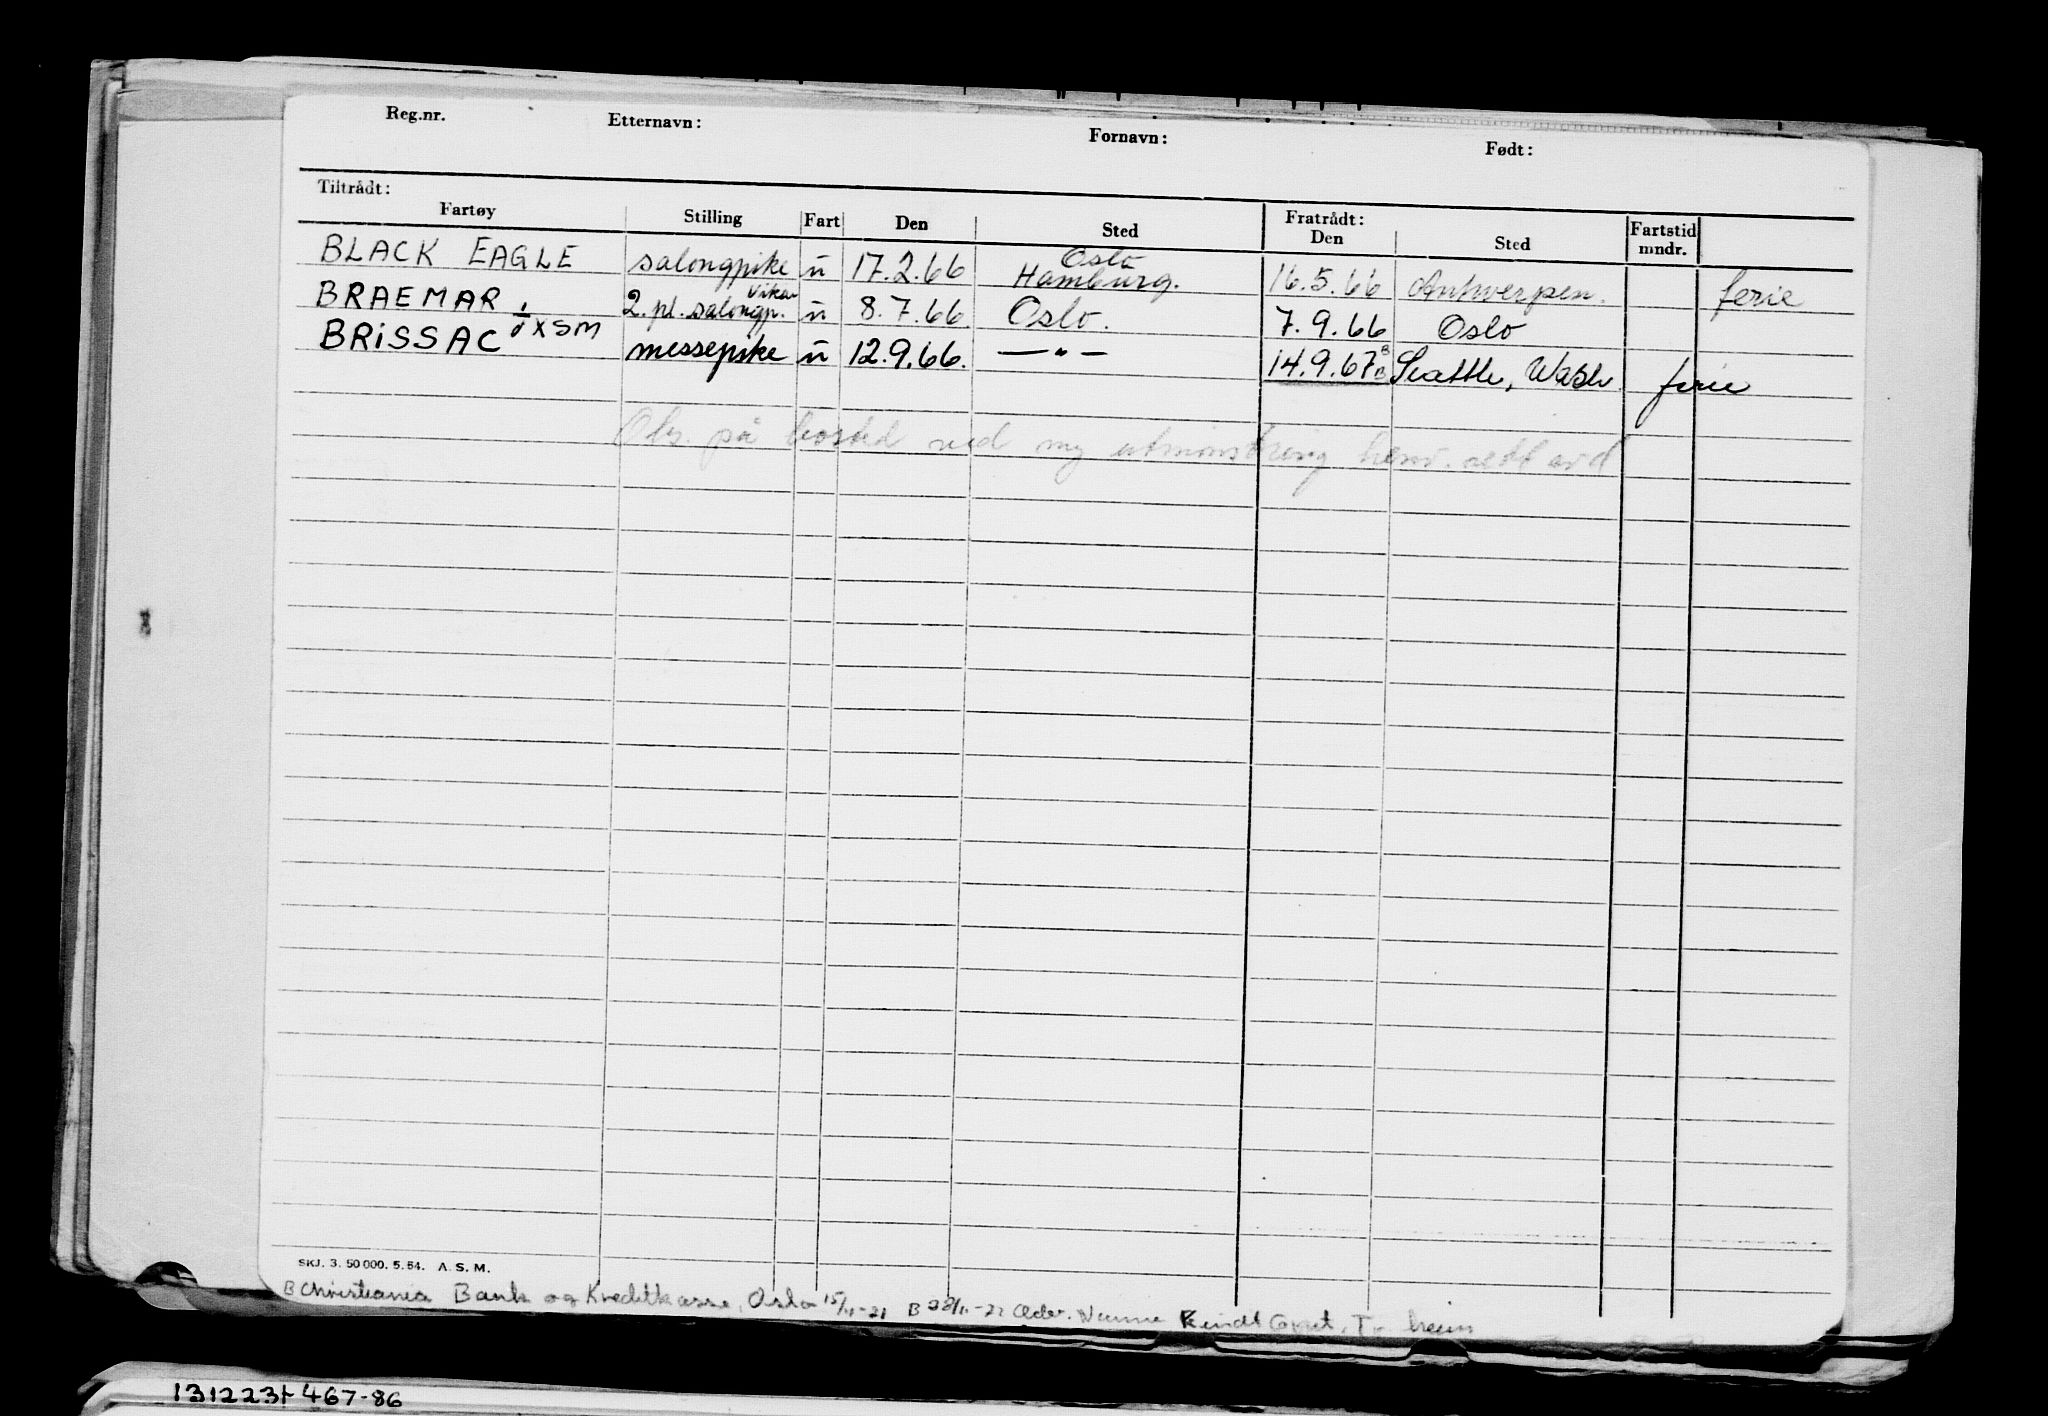 Reg.nr. Etternavn: Fornavn: Født:
Tiltrådt: Fratrådt:
Fartøy Stilling Fart Den Sted Den Sted Fartstid mndr.
BLACK EAGLE salongpike u 17.2.66 Oslo Hamburg. 16.5.66 Antwerpen. ferie
BRAEMAR 2. pl. salongp. vikar u 8.7.66 Oslo. 7.9.66 Oslo
BRISSAC XSM messepike u 12.9.66. — " — 14.9.67 B Seattle, Wash ferie
på bosted ved ny utmønstring henv.
SKJ. 3. 50 000. 5. 54. A. S. M.
B Christiania Bank og Kreditkasse, Oslo 15/11-21 B 28/11-22 Kindt
131223+ 467-86